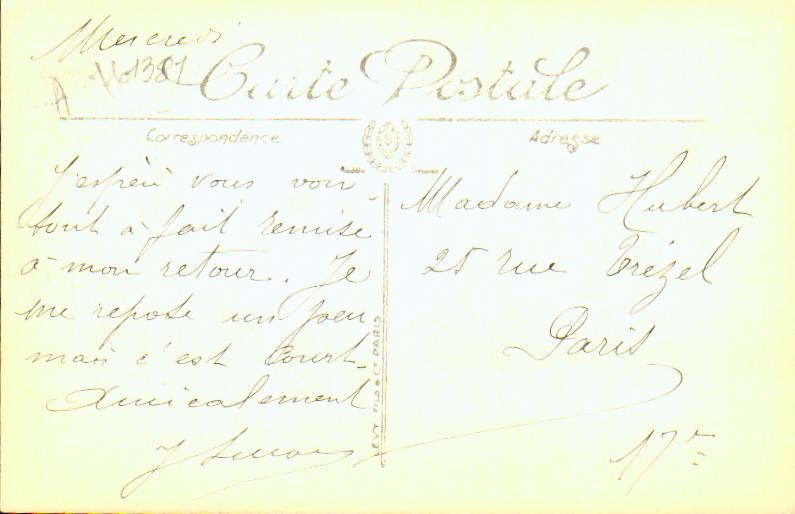 Mercredi
A 1381
Carte Postale
Correspondance
Adresse
J'espère vous voir
tout à fait remise
à mon retour. Je
me repose un peu
mais c'est court.
Amicalement
J
Madame Hubert
25 rue Trézel
Paris
17e
LEVY FILS & Cie PARIS